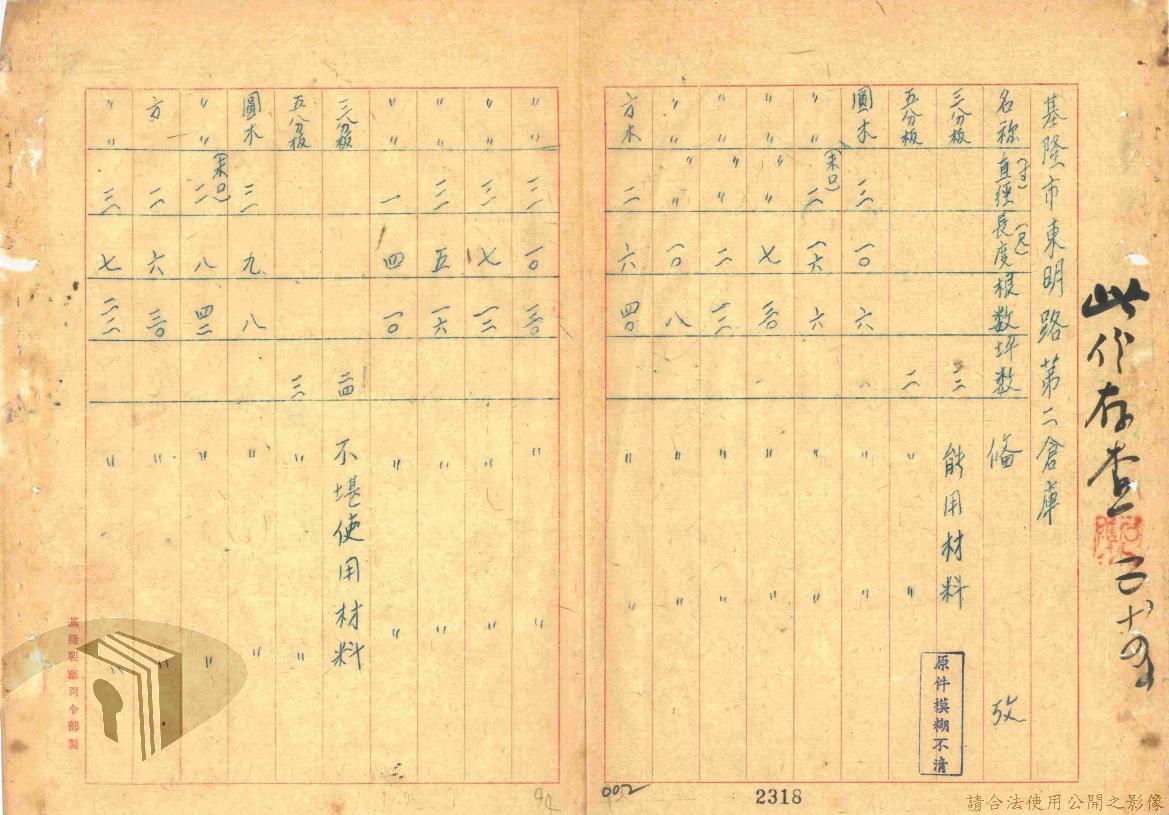 此件存查
基隆市東明路第二倉庫
名称 直徑(寸) 長度(尺) 根数 坪数 備 攷
三分板 二 能用材料
五分板 二 〃 〃
圓木 三 一〇 六 〃 〃
〃 〃 (末口) 二 一六 六 〃 〃
〃 〃 〃 七 二〇 〃 〃
〃 〃 〃 〃 二 〃 〃
〃 〃 〃 〃 一〇 八 〃 〃
方木 二 六 四〇 〃 〃
〃 〃 一〇 二〇 〃 〃
〃 〃 三 七 〃 〃
〃 〃 五 一六 〃 〃
〃 〃 一 四 一〇 〃 〃
三分板 不堪使用材料
五分板 三 〃 〃
圓木 三 九 八 〃 〃
〃 〃 (末口) 二 八 四二 〃 〃
方 二 六 三〇 〃 〃
〃 〃 三 七 〃 〃
基隆要塞司令部製
原件模糊不清
002
2318
請合法使用公開之影像